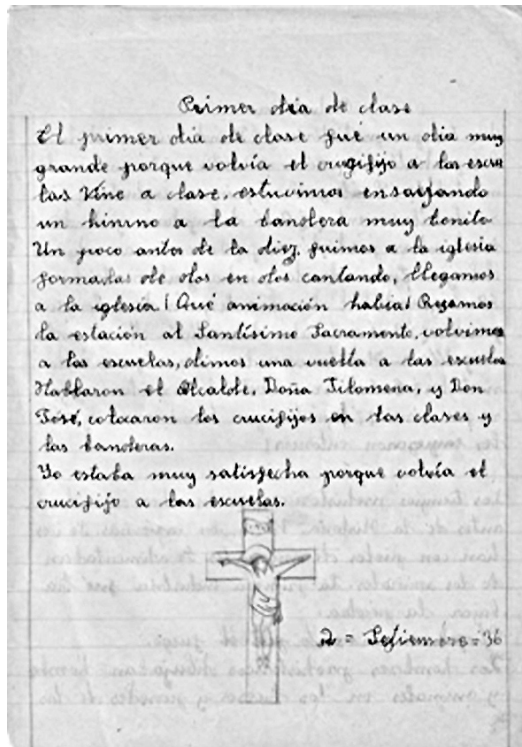 Primer dia de clase
El primer dia de clase fué un dia muy
grande porque volvía el crugifijo a las escue
las Vine a clase, estuvimos ensayando
un himno a la bandera muy bonito
Un poco antes de la diez fuimos a la iglesia
formadas de dos en dos cantando, llegamos
a la iglesia ¡Qué animación había! Rezamos
la estación al Santísimo Sacramento, volvimos
a las escuelas, dimos una vuelta a las escuelas
Hablaron el Alcalde, Doña Filomena, y Don
José, colocaron los crucifijos en las clases y
las banderas.
Yo estaba muy satisfecha porque volvía el
crucifijo a las escuelas.
2 = Setiembre = 36